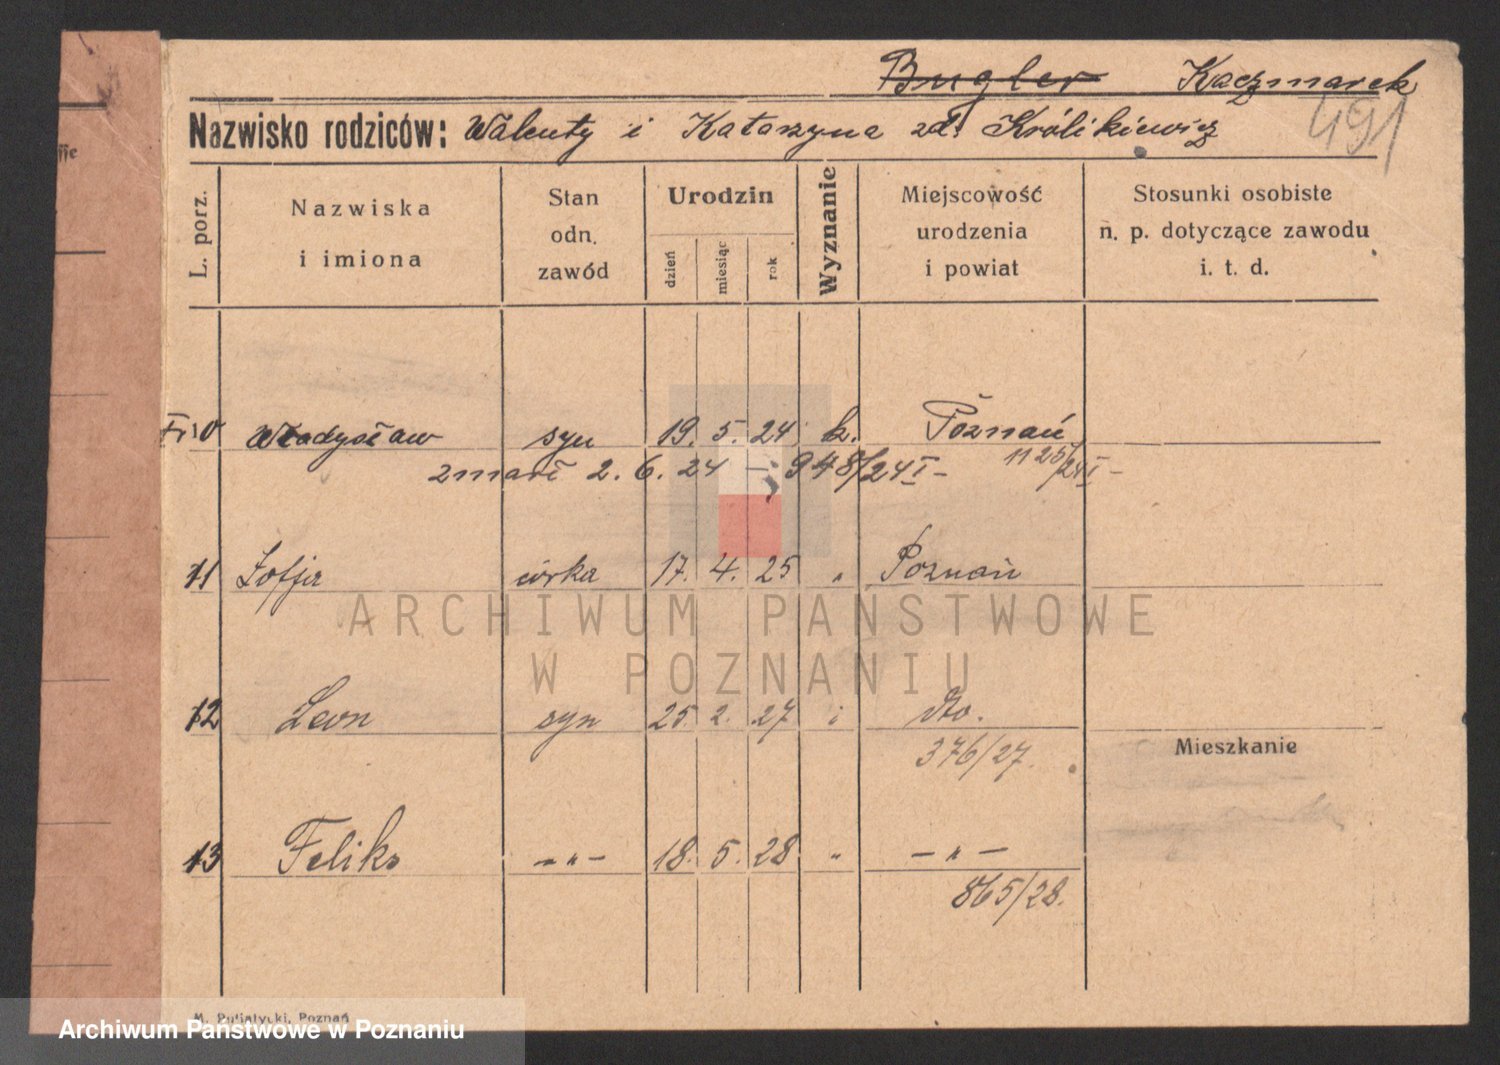 Bugler Kaczmarek
Nazwisko rodziców: Walenty i Katarzyna zd. Królikiewicz
491
L. porz.
Nazwiska
i imiona
Stan
odn.
zawód
Urodzin
dzień
miesiąc
rok
Wyznanie
Miejscowość
urodzenia
i powiat
Stosunki osobiste
n. p. dotyczące zawodu
i. t. d.
10 Władysław syn 19. 5. 24 k. Poznań
zmarł 2. 6. 24 – 948/24 I – 1125/24 I –
11 Zofja córka 17. 4. 25 " Poznań
ARCHIWUM PAŃSTWOWE
W POZNANIU
12 Leon syn 25. 2. 27 dto.
376/27.
Mieszkanie
13 Feliks –"– 18. 5. 28 " –"–
865/28.
M. Putiatycki, Poznań
Archiwum Państwowe w Poznaniu